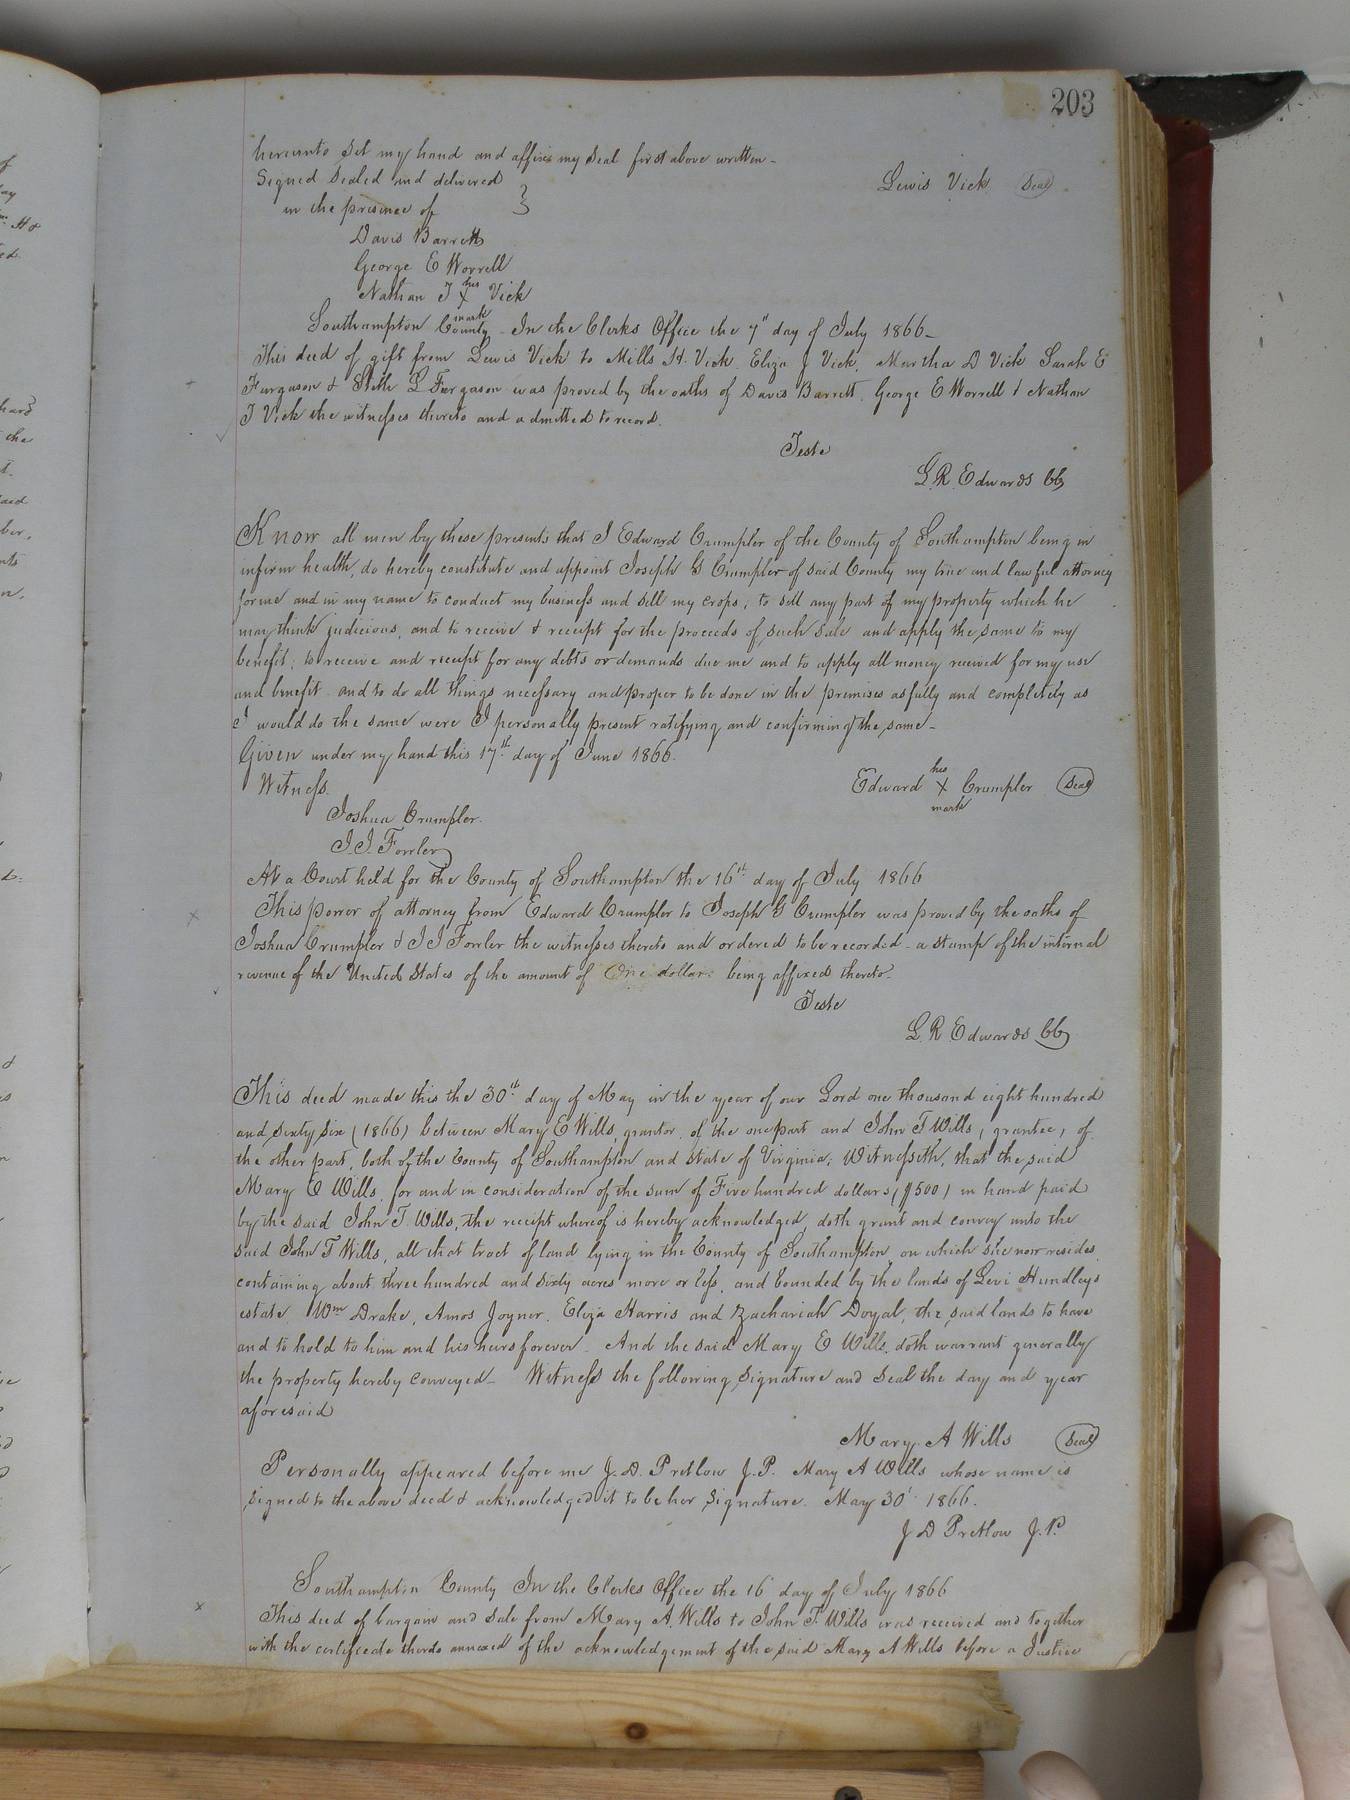 203
hereunto set my hand and affix my seal first above written –
Signed Sealed and delivered } Lewis Vick (Seal)
in the presence of
Davis Barrett
George E Worrell
Nathan J his X mark Vick
Southampton County – In the Clerks Office the 7" day of July 1866 –
This deed of gift from Lewis Vick to Mills H. Vick, Eliza J Vick, Martha D Vick Sarah E
Furgason & L Furgason was proved by the oaths of Davis Barrett, George E Worrell & Nathan
J Vick the witnesses thereto and admitted to record.
Teste
L. R. Edwards CC
Know all men by these presents that I Edward Crumpler of the County of Southampton being in
infirm health, do hereby constitute and appoint Joseph G Crumpler of said County my true and lawful attorney
for me and in my name to conduct my business and sell my crops, to sell any part of my property which he
may think judicious, and to receive & receipt for the proceeds of such sale and apply the same to my
benefit; to receive and receipt for any debts or demands due me and to apply all money received for my use
and benefit and to do all things necessary and proper to be done in the premises as fully and completely as
I would do the same were I personally present ratifying and confirming the same –
Given under my hand this 17th day of June 1866.
Witness. Edward his X mark Crumpler (Seal)
Joshua Crumpler.
J. J. Fowler
At a Court held for the County of Southampton the 16th day of July 1866
This power of attorney from Edward Crumpler to Joseph G Crumpler was proved by the oaths of
Joshua Crumpler & J J Fowler the witnesses thereto and ordered to be recorded – a stamp of the internal
revenue of the United States of the amount of One dollar being affixed thereto.
Teste
L. R Edwards CC
This deed made this the 30th day of May in the year of our Lord one thousand eight hundred
and sixty six (1866) between Mary E Wills, grantor, of the one part and John T Wills, grantee, of
the other part, both of the County of Southampton and State of Virginia; Witnesseth, that the said
Mary E Wills, for and in consideration of the sum of Five hundred dollars ($500) in hand paid
by the said John T. Wills, the receipt whereof is hereby acknowledged, doth grant and convey unto the
said John T Wills, all that tract of land lying in the County of Southampton, on which she now resides,
containing about three hundred and sixty acres more or less, and bounded by the lands of Levi Hundleys
estate, Wm Drake, Amos Joyner, Eliza Harris and Zachariah Doyal, the said lands to have
and to hold to him and his heirs forever. And the said Mary E Wills, doth warrant generally
the property hereby conveyed – Witness the following signature and seal the day and year
aforesaid
Mary A Wills (Seal)
Personally appeared before me J. D. Pretlow J. P. Mary A Wills whose name is
signed to the above deed & acknowledged it to be her signature. May 30' 1866.
J D Pretlow J. P.
Southampton County In the Clerks Office the 16 day of July 1866
This deed of bargain and sale from Mary A. Wills to John T. Wills was received and together
with the certificate thereto annexed of the acknowledgement of the said Mary A Wills before a Justice